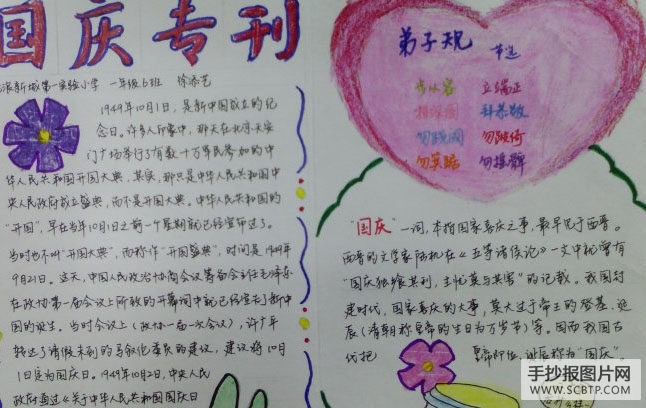 国庆专刊
新城第一实验小学 一年级6班 徐添艺
1949年10月1日,是新中国成立的纪
念日。许多人印象中,那天在北京天安
门广场举行了有数十万军民参加的中
华人民共和国开国大典。其实,那只是中华人民共和国中
央人民政府成立盛典,而不是开国大典。中华人民共和国的
"开国",早在当年10月1日之前一个星期就已经宣布过了。
当时也不叫"开国大典",而称作"开国盛典",时间是1949年
9月21日。这天,中国人民政治协商会议筹备会主任毛泽东
在政协第一届会议上所致的开幕词中就已经宣告新中
国的诞生。当时会议上(政协一届一次会议),许广平
转达了请假未到的马叙伦委员的建议,建议将10月
1日定为国庆日。1949年10月2日,中央人民
政府通过《关于中华人民共和国国庆日
弟子规 节选
步从容 立端正
揖深圆 拜恭敬
勿践阈 勿跛倚
勿箕踞 勿摇髀
"国庆"一词,本指国家喜庆之事,最早见于西晋。
西晋的文学家陆机在《五等诸侯论》一文中就曾有
"国庆独飨其利,主忧莫与其害"的记载。我国封
建时代,国家喜庆的大事,莫大过于帝王的登基、诞
辰(清朝称皇帝的生日为万岁节)等。因而我国古
代把 皇帝即位、诞辰称为"国庆"。
手抄报图片网
WWW.SCBTP.COM